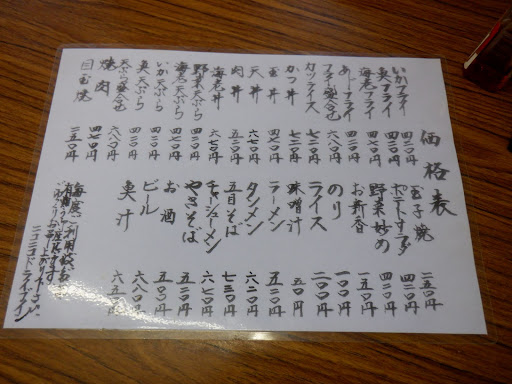 価格表
いかフライ 四二〇円
魚フライ 四二〇円
海老フライ 四七〇円
あじフライ 四二〇円
フライ盛合せ 六八〇円
カツライス 七二〇円
かつ丼 七二〇円
玉丼 四七〇円
天丼 六七〇円
肉丼 五二〇円
海老丼 六七〇円
野菜天ぷら 四二〇円
海老天ぷら 四七〇円
いか天ぷら 四二〇円
魚天ぷら 四二〇円
天ぷら盛合せ 六八〇円
焼肉 四七〇円
目玉焼 二五〇円
玉子焼 二五〇円
ポテトサラダ 四二〇円
野菜炒め 四二〇円
お新香 一五〇円
のり 一〇〇円
ライス 二〇〇円
味噌汁 五〇円
ラーメン 五二〇円
タンメン 六二〇円
五目そば 七三〇円
チャーシューメン 六七〇円
やきそば 五二〇円
お酒 五〇〇円
ビール 六八〇円
魚汁 六五〇円
毎度ご利用
ニコニコドライブイン